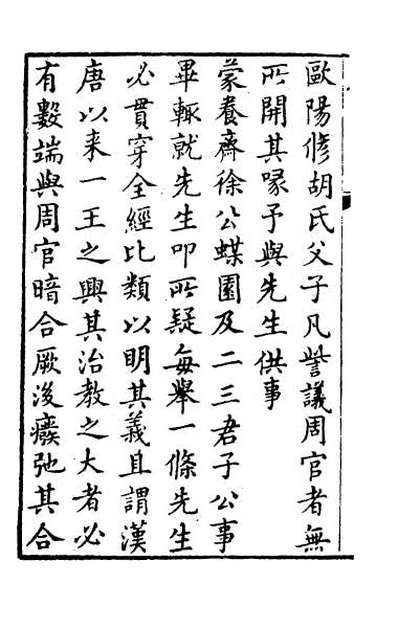 歐陽修胡氏父子凡訾議周官者無
所開其喙予與先生供事
蒙養齋徐公蝶園及二三君子公事
畢輒就先生叩所疑每舉一條先生
必貫穿全經比類以明其義且謂漢
唐以来一王之興其治教之大者必
有數端與周官暗合厥後癈弛其合